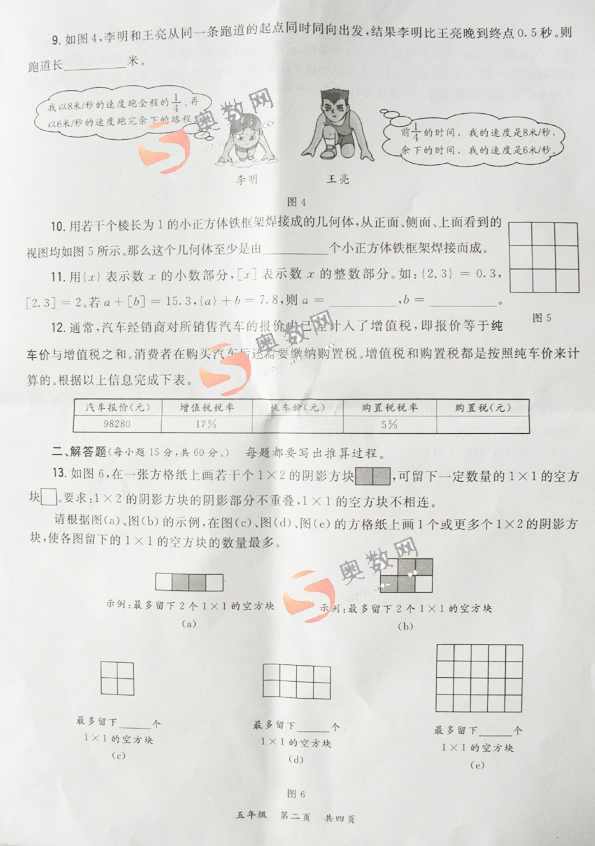 9. 如图4,李明和王亮从同一条跑道的起点同时同向出发,结果李明比王亮晚到终点0.5秒。则
跑道长__________米。
我以8米/秒的速度跑全程的1/4,再
以6米/秒的速度跑完余下的路程
前1/4的时间,我的速度是8米/秒,
余下的时间,我的速度是6米/秒。
奥数网
李明
王亮
图4
10. 用若干个棱长为1的小正方体铁框架焊接成的几何体,从正面、侧面、上面看到的
视图均如图5所示。那么这个几何体至少是由__________个小正方体铁框架焊接而成。
11. 用{x}表示数x的小数部分,[x]表示数x的整数部分。如:{2.3}=0.3,
[2.3]=2。若a+[b]=15.3,{a}+b=7.8,则a=__________,b=__________。
图5
12. 通常,汽车经销商对所销售汽车的报价中已经计入了增值税,即报价等于纯
车价与增值税之和。消费者在购买汽车后还需要缴纳购置税。增值税和购置税都是按照纯车价来计
算的。根据以上信息完成下表。
奥数网
汽车报价(元) 增值税税率 纯车价(元) 购置税税率 购置税(元)
98280 17% 5%
二、解答题(每小题15分,共60分。) 每题都要写出推算过程。
13. 如图6,在一张方格纸上画若干个1×2的阴影方块,可留下一定数量的1×1的空方
块。要求:1×2的阴影方块的阴影部分不重叠,1×1的空方块不相连。
请根据图(a)、图(b)的示例,在图(c)、图(d)、图(e)的方格纸上画1个或更多个1×2的阴影方
块,使各图留下的1×1的空方块的数量最多。
奥数网
示例:最多留下2个1×1的空方块
示例:最多留下2个1×1的空方块
(a)
(b)
最多留下______个
1×1的空方块
(c)
最多留下______个
1×1的空方块
(d)
最多留下______个
1×1的空方块
(e)
图6
五年级 第二页 共四页